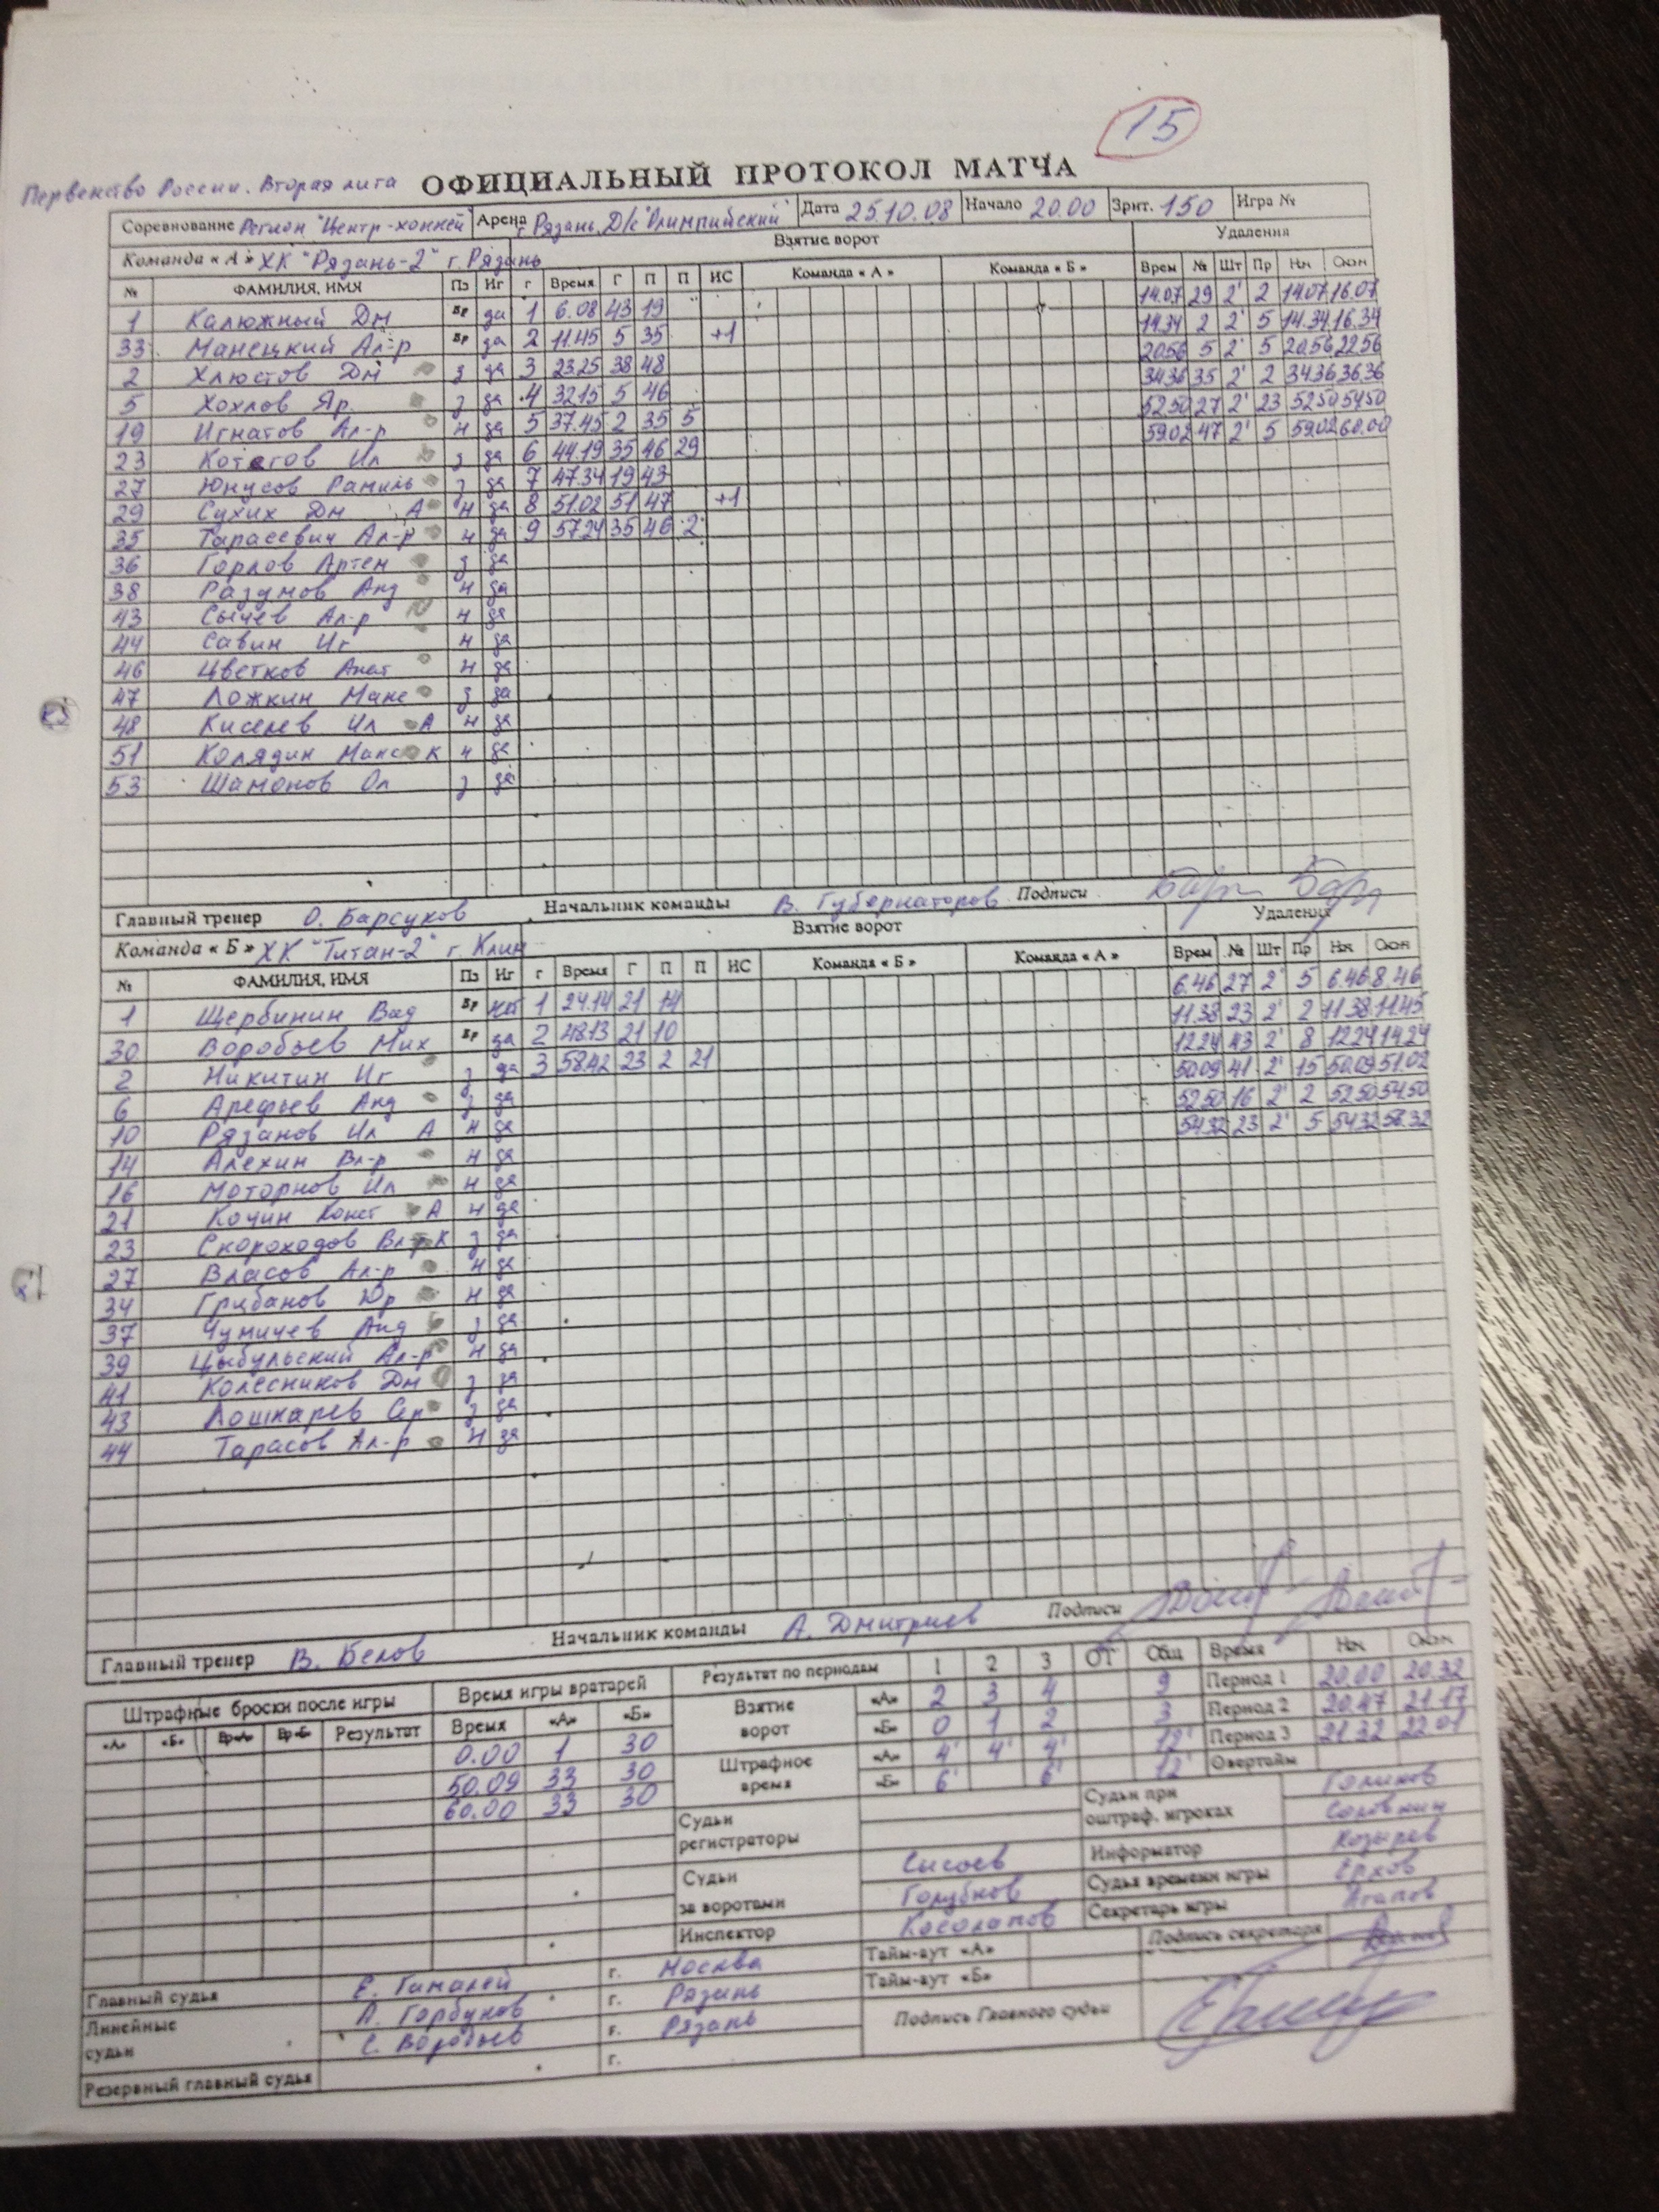 15
Первенство России. Вторая лига ОФИЦИАЛЬНЫЙ ПРОТОКОЛ МАТЧА
Соревнование Регион "Центр-хоккей" Арена г. Рязань, Д/с "Олимпийский" Дата 25.10.08 Начало 20.00 Зрит. 150 Игра №
Команда «А» ХК "Рязань-2" г. Рязань Взятие ворот Удаления
№ ФАМИЛИЯ, ИМЯ Пз Иг г Время Г П П ИС Команда «А» Команда «Б» Врем № Шт Пр Нач Окон
1 Калюжный Дм Вр да 1 6.08 43 19 14.07 29 2' 2 14.07 16.07
33 Манецкий Ал-р Вр да 2 11.45 5 35 +1 14.34 2 2' 5 14.34 16.34
2 Хлюстов Дм з да 3 23.25 38 48 20.56 5 2' 5 20.56 22.56
5 Хохлов Яр. з да 4 32.15 5 46 34.36 35 2' 2 34.36 36.36
19 Игнатов Ал-р н да 5 37.45 2 35 5 52.50 27 2' 23 52.50 54.50
23 Котегов Ил з да 6 44.19 35 46 29 59.02 47 2' 5 59.02 60.00
27 Юнусов Рамиль з да 7 47.34 19 43
29 Сухих Дм А н да 8 51.02 51 47 +1
35 Тарасевич Ал-р н да 9 57.24 35 46 2
36 Горлов Артем з да
38 Разумов Анд н да
43 Сычев Ал-р н да
44 Савин Иг н да
46 Цветков Анат н да
47 Ложкин Макс з да
48 Киселев Ил А н да
51 Колядин Макс К н да
53 Шамонов Ол з да
Главный тренер О. Барсуков Начальник команды В. Губернаторов Подписи
Команда «Б» ХК "Титан-2" г. Клин Взятие ворот Удаления
№ ФАМИЛИЯ, ИМЯ Пз Иг г Время Г П П ИС Команда «Б» Команда «А» Врем № Шт Пр Нач Окон
1 Щербинин Вад Вр нет 1 24.14 21 14 6.46 27 2' 5 6.46 8.46
30 Воробьев Мих Вр да 2 48.13 21 10 11.38 23 2' 2 11.38 11.45
2 Никитин Иг з да 3 58.42 23 2 21 12.24 43 2' 8 12.24 14.24
6 Арефьев Анд з да 50.09 41 2' 15 50.09 51.02
10 Рязанов Ил А н да 52.50 16 2' 2 52.50 54.50
14 Алехин Вл-р н да 54.32 23 2' 5 54.32 56.32
16 Моторнов Ил н да
21 Кочин Конст А н да
23 Скороходов Вл-р К з да
27 Власов Ал-р н да
34 Грибанов н да
37 Чумичев Анд з да
39 Цыбульский Ал-р н да
41 Колесников Дм з да
43 Лошкарев Сер з да
44 Тарасов Ал-р н да
Главный тренер В. Белов Начальник команды А. Дмитриев Подписи
Штрафные броски после игры Время игры вратарей Результат по периодам 1 2 3 ОТ Общ Время Нач Окон
«А» «Б» Вр«А» Вр«Б» Результат Время «А» «Б» Взятие ворот «А» 2 3 4 9 Период 1 20.00 20.32
0.00 1 30 «Б» 0 1 2 3 Период 2 20.47 21.17
50.09 33 30 Штрафное время «А» 4' 4' 4' 12' Период 3 21.32 22.01
60.00 33 30 «Б» 6' 6' 12' Овертайм
Судьи регистраторы Судьи при оштраф. игроках Голиков
Соловкин
Судьи за воротами Сысоев Информатор Козырев
Голубков Судья времени игры Ерхов
Инспектор Косолапов Секретарь игры Агапов
Главный судья Е. Гамалей г. Москва Тайм-аут «А» Подпись секретаря
Линейные судьи П. Горбунов г. Рязань Тайм-аут «Б»
С. Воробьев г. Рязань Подпись Главного судьи
Резервный главный судья г.